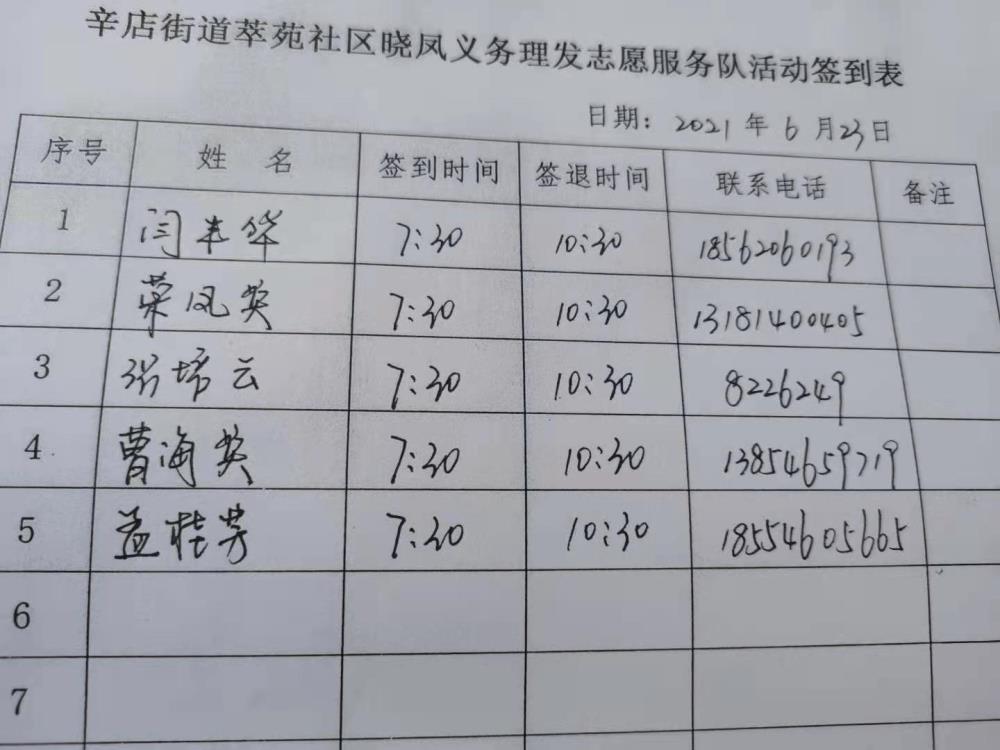 辛店街道萃苑社区晓凤义务理发志愿服务队活动签到表
日期：2021年6月23日
序号 姓名 签到时间 签退时间 联系电话 备注
1 闫丰华 7:30 10:30 18562060193
2 荣凤英 7:30 10:30 13181400405
3 张培云 7:30 10:30 8226249
4 曹海英 7:30 10:30 13854659719
5 孟桂芳 7:30 10:30 18554605665
6
7